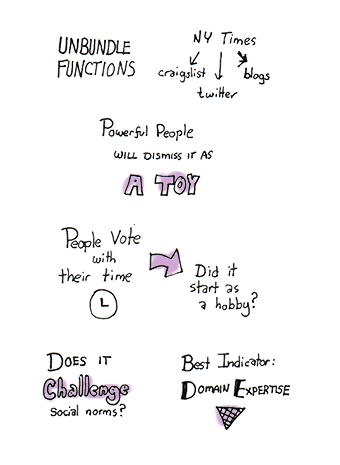 UNBUNDLE
FUNCTIONS
NY Times
craigslist
twitter
blogs
Powerful People
WILL DISMISS IT AS
A TOY
People Vote
with
their time
Did it
start as
a hobby?
DOES IT
Challenge
social norms?
Best Indicator:
DOMAIN EXPERTISE